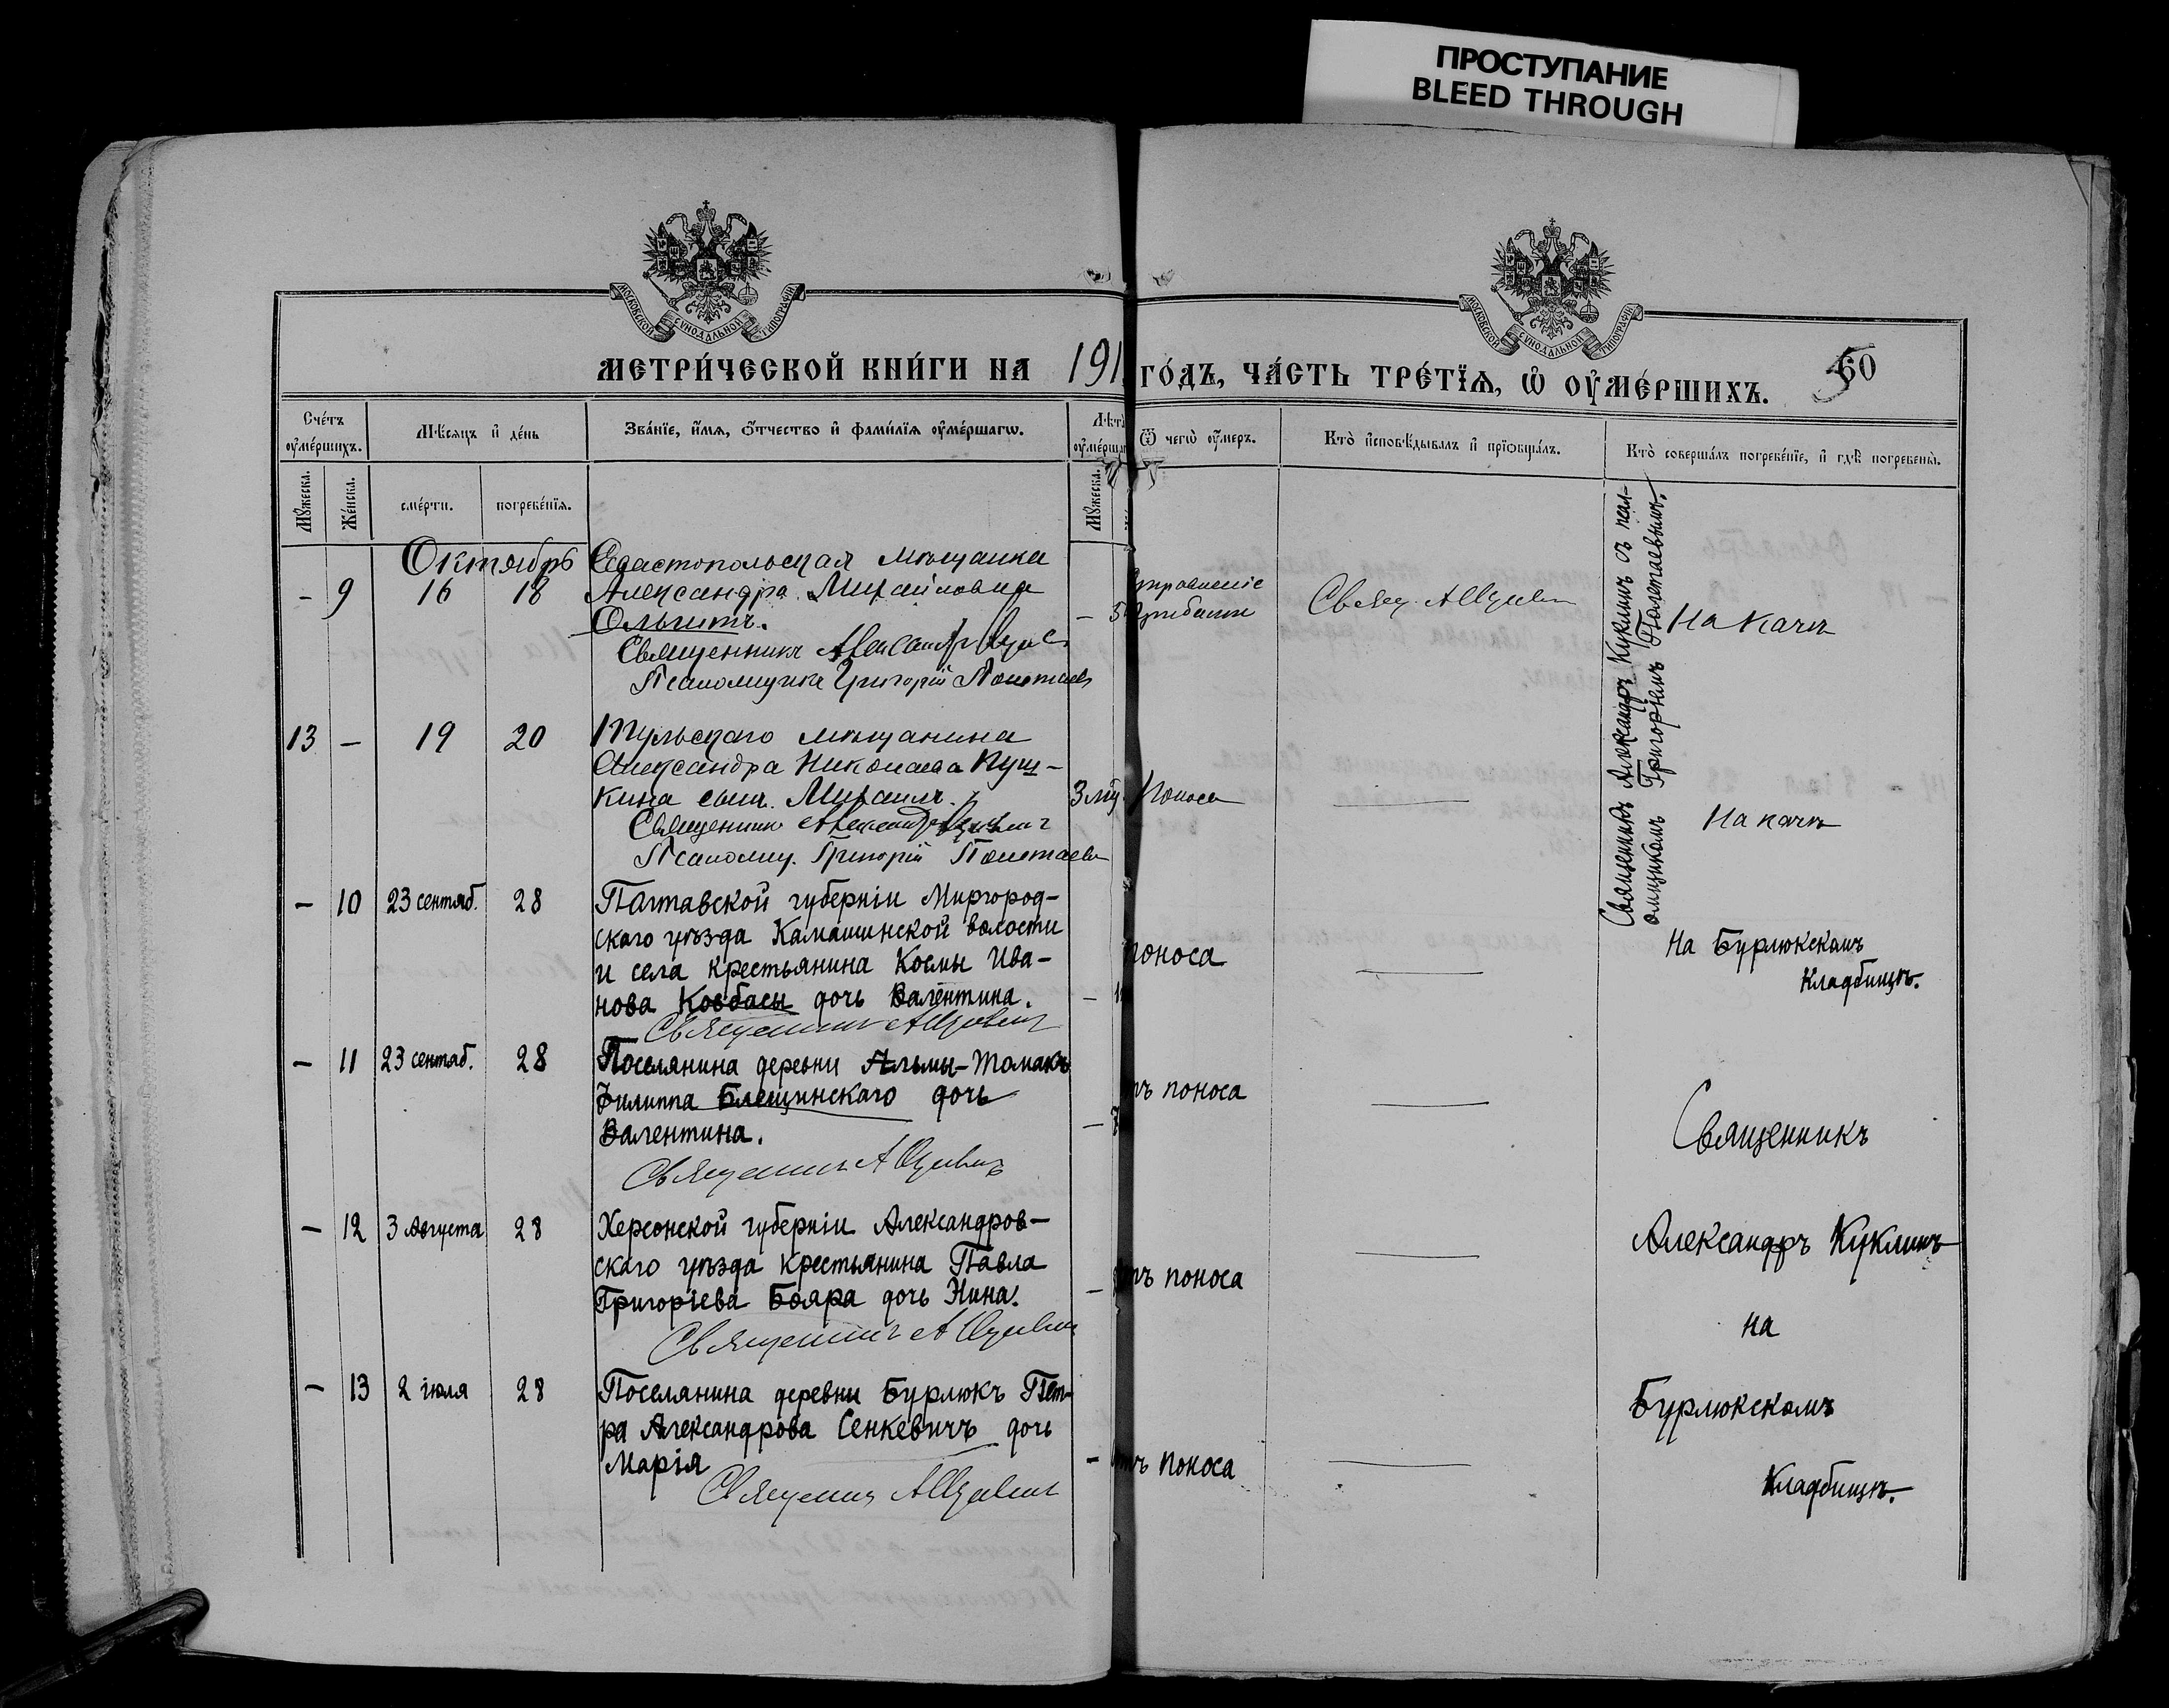 ПРОСТУПАНИЕ
BLEED THROUGH
МОСКОВСКОЙ СѴНОДАЛЬНОЙ ТИПОГРАФІИ
МОСКОВСКОЙ СѴНОДАЛЬНОЙ ТИПОГРАФІИ
МЕТРИ́ЧЕСКОЙ КНИ́ГИ НА 191
ГО́ДЪ, ЧА́СТЬ ТРЕ́ТЇѦ, Ѡ҆ ОУ҆МЕ́РШИХЪ.
60
Сче́тъ оу҆ме́ршихъ.
Мѣ́сѧцъ и҆ де́нь
Зва́нїе, и҆́мѧ, ѻ҆́тчество и҆ фами́лїѧ оу҆ме́ршагѡ.
Ѿ чегѡ̀ оу҆́меръ.
Кто̀ и҆сповѣ́дывалъ и҆ прїѡбща́лъ.
Кто̀ соверша́лъ погребе́нїе, и҆ гдѣ̀ погребены̀.
Мꙋ́жеска.
Же́нска.
сме́рти.
погребе́нїѧ.
Мꙋ́жеска.
Октябрь
Севастопольская мѣщанка
– 9 16 18 Александра Михайловна
Ольгитъ.
Священникъ Александръ
Псаломщикъ Григорій Полетаевъ
– 5
грибами
Свящ. А
На Качѣ
Священникъ Александръ Куклинъ съ псал-
омщикомъ Григоріемъ Полетаевымъ.
13 – 19 20 Тульскаго мѣщанина
Александра Николаева Пуш-
кина сынъ Михаилъ.
Священникъ Александръ
Псаломщ. Григорій Полетаевъ
3 мѣ. Поноса
На качѣ
– 10 23 сентяб. 28 Полтавской губерніи Миргород-
скаго уѣзда Камышинской волости
и села крестьянина Космы Ива-
нова Ковбасы дочь Валентина.
Священникъ А
поноса
На Бурлюкскомъ
Кладбищѣ.
– 11 23 сентяб. 28 Поселянина деревни Альмы-Томакъ
Филиппа Блещинскаго дочь
Валентина.
Священникъ А
тъ поноса
Священникъ
– 12 3 Августа 28 Херсонской губерніи Александров-
скаго уѣзда крестьянина Павла
Григоріева Бояра дочь Нина.
Священникъ А
тъ поноса
Александръ Куклинъ
на
– 13 2 іюля 28 Поселянина деревни Бурлюкъ Пет-
ра Александрова Сенкевичъ дочь
Марія
Священникъ А
тъ поноса
Бурлюкскомъ
Кладбищѣ.